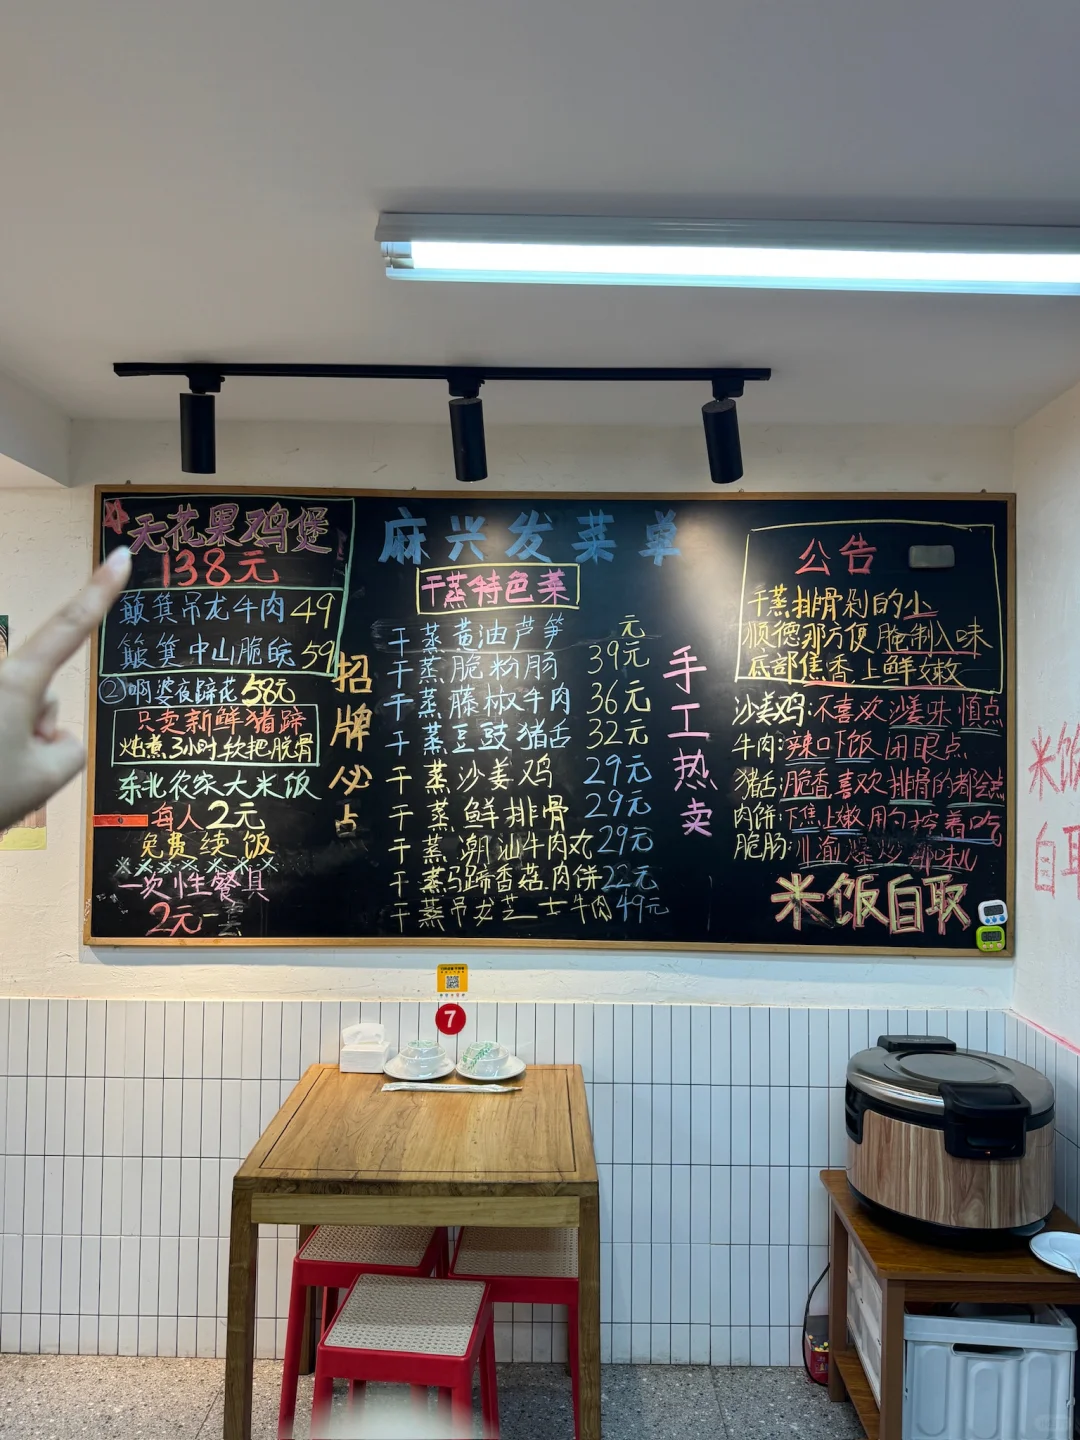 无花果鸡煲
138元
簸箕吊龙牛肉 49
簸箕中山脆皖 59
②啊婆夜蹄花 58元
只卖新鲜猪蹄
炖煮3小时软把脱骨
东北农家大米饭
每人2元
免费续饭
一次性餐具
2元一套
招牌必点
麻兴发菜单
干蒸特色菜
干蒸黄油芦笋 元
干蒸脆粉肠 39元
干蒸藤椒牛肉 36元
干蒸豆豉猪舌 32元
干蒸沙姜鸡 29元
干蒸鲜排骨 29元
干蒸潮汕牛肉丸 29元
干蒸马蹄香菇肉饼 22元
干蒸吊龙芝士牛肉 49元
手工热卖
公告
干蒸排骨剁的小
顺德那方便腌制入味
底部焦香上鲜嫩
沙姜鸡:不喜欢沙姜味慎点
牛肉:辣口下饭闭眼点
猪舌:脆香喜欢排骨的都会点
肉饼:下焦上嫩用勺挖着吃
脆肠:
米饭自取
米饭
自取
7